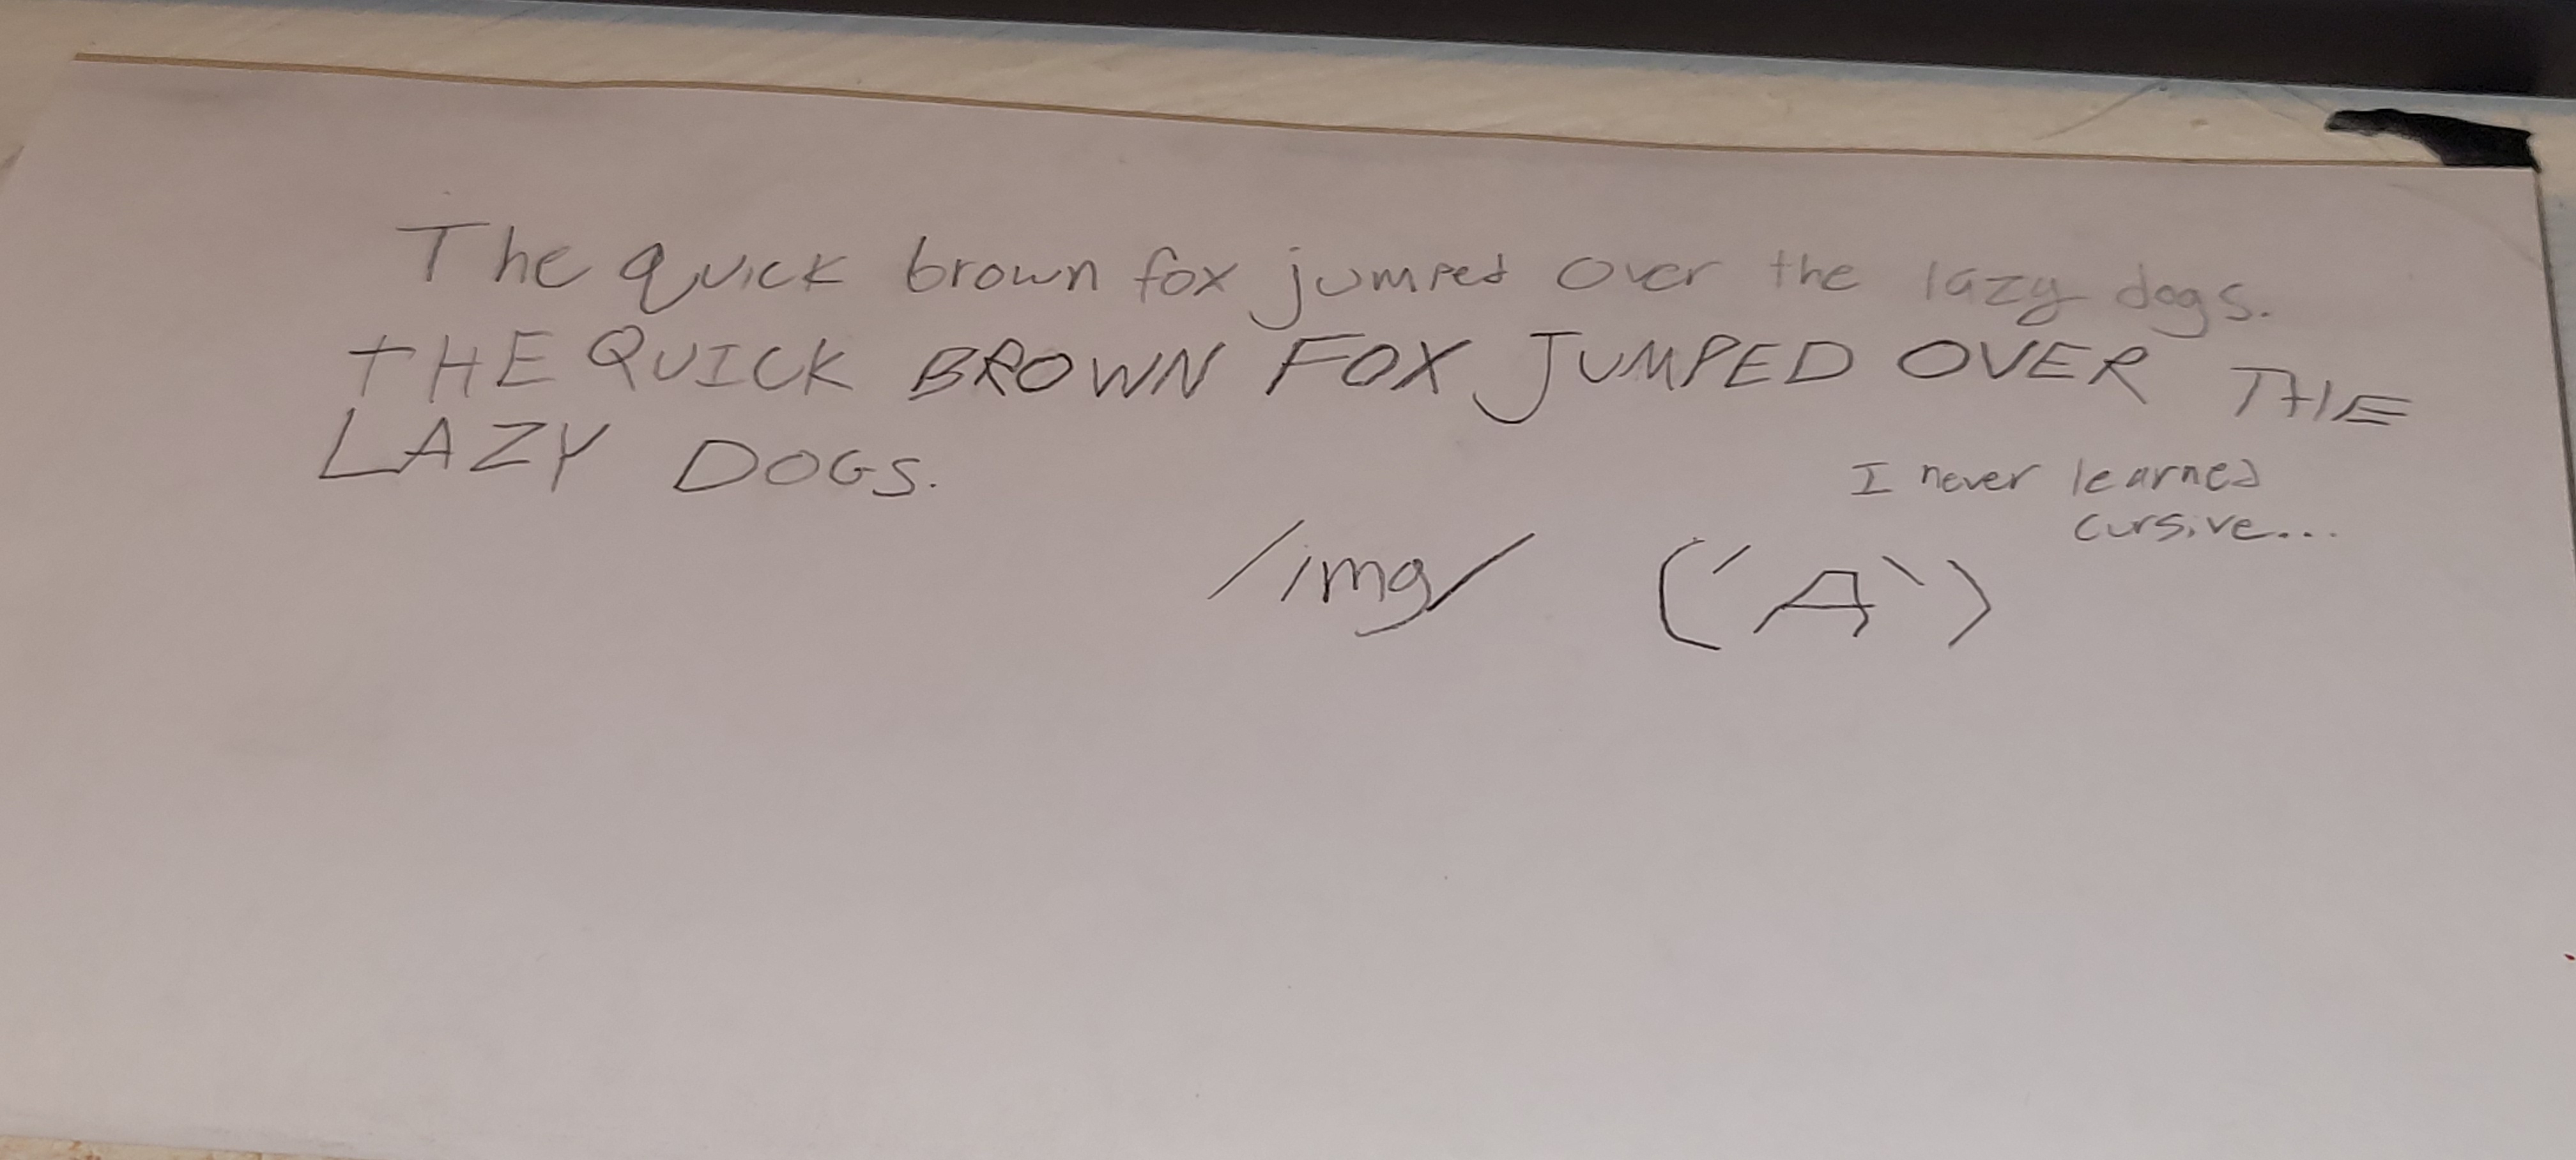 The quick brown fox jumped over the lazy dogs.
THE QUICK BROWN FOX JUMPED OVER THE
LAZY DOGS.
I never learned
cursive...
/img/ ('A`)